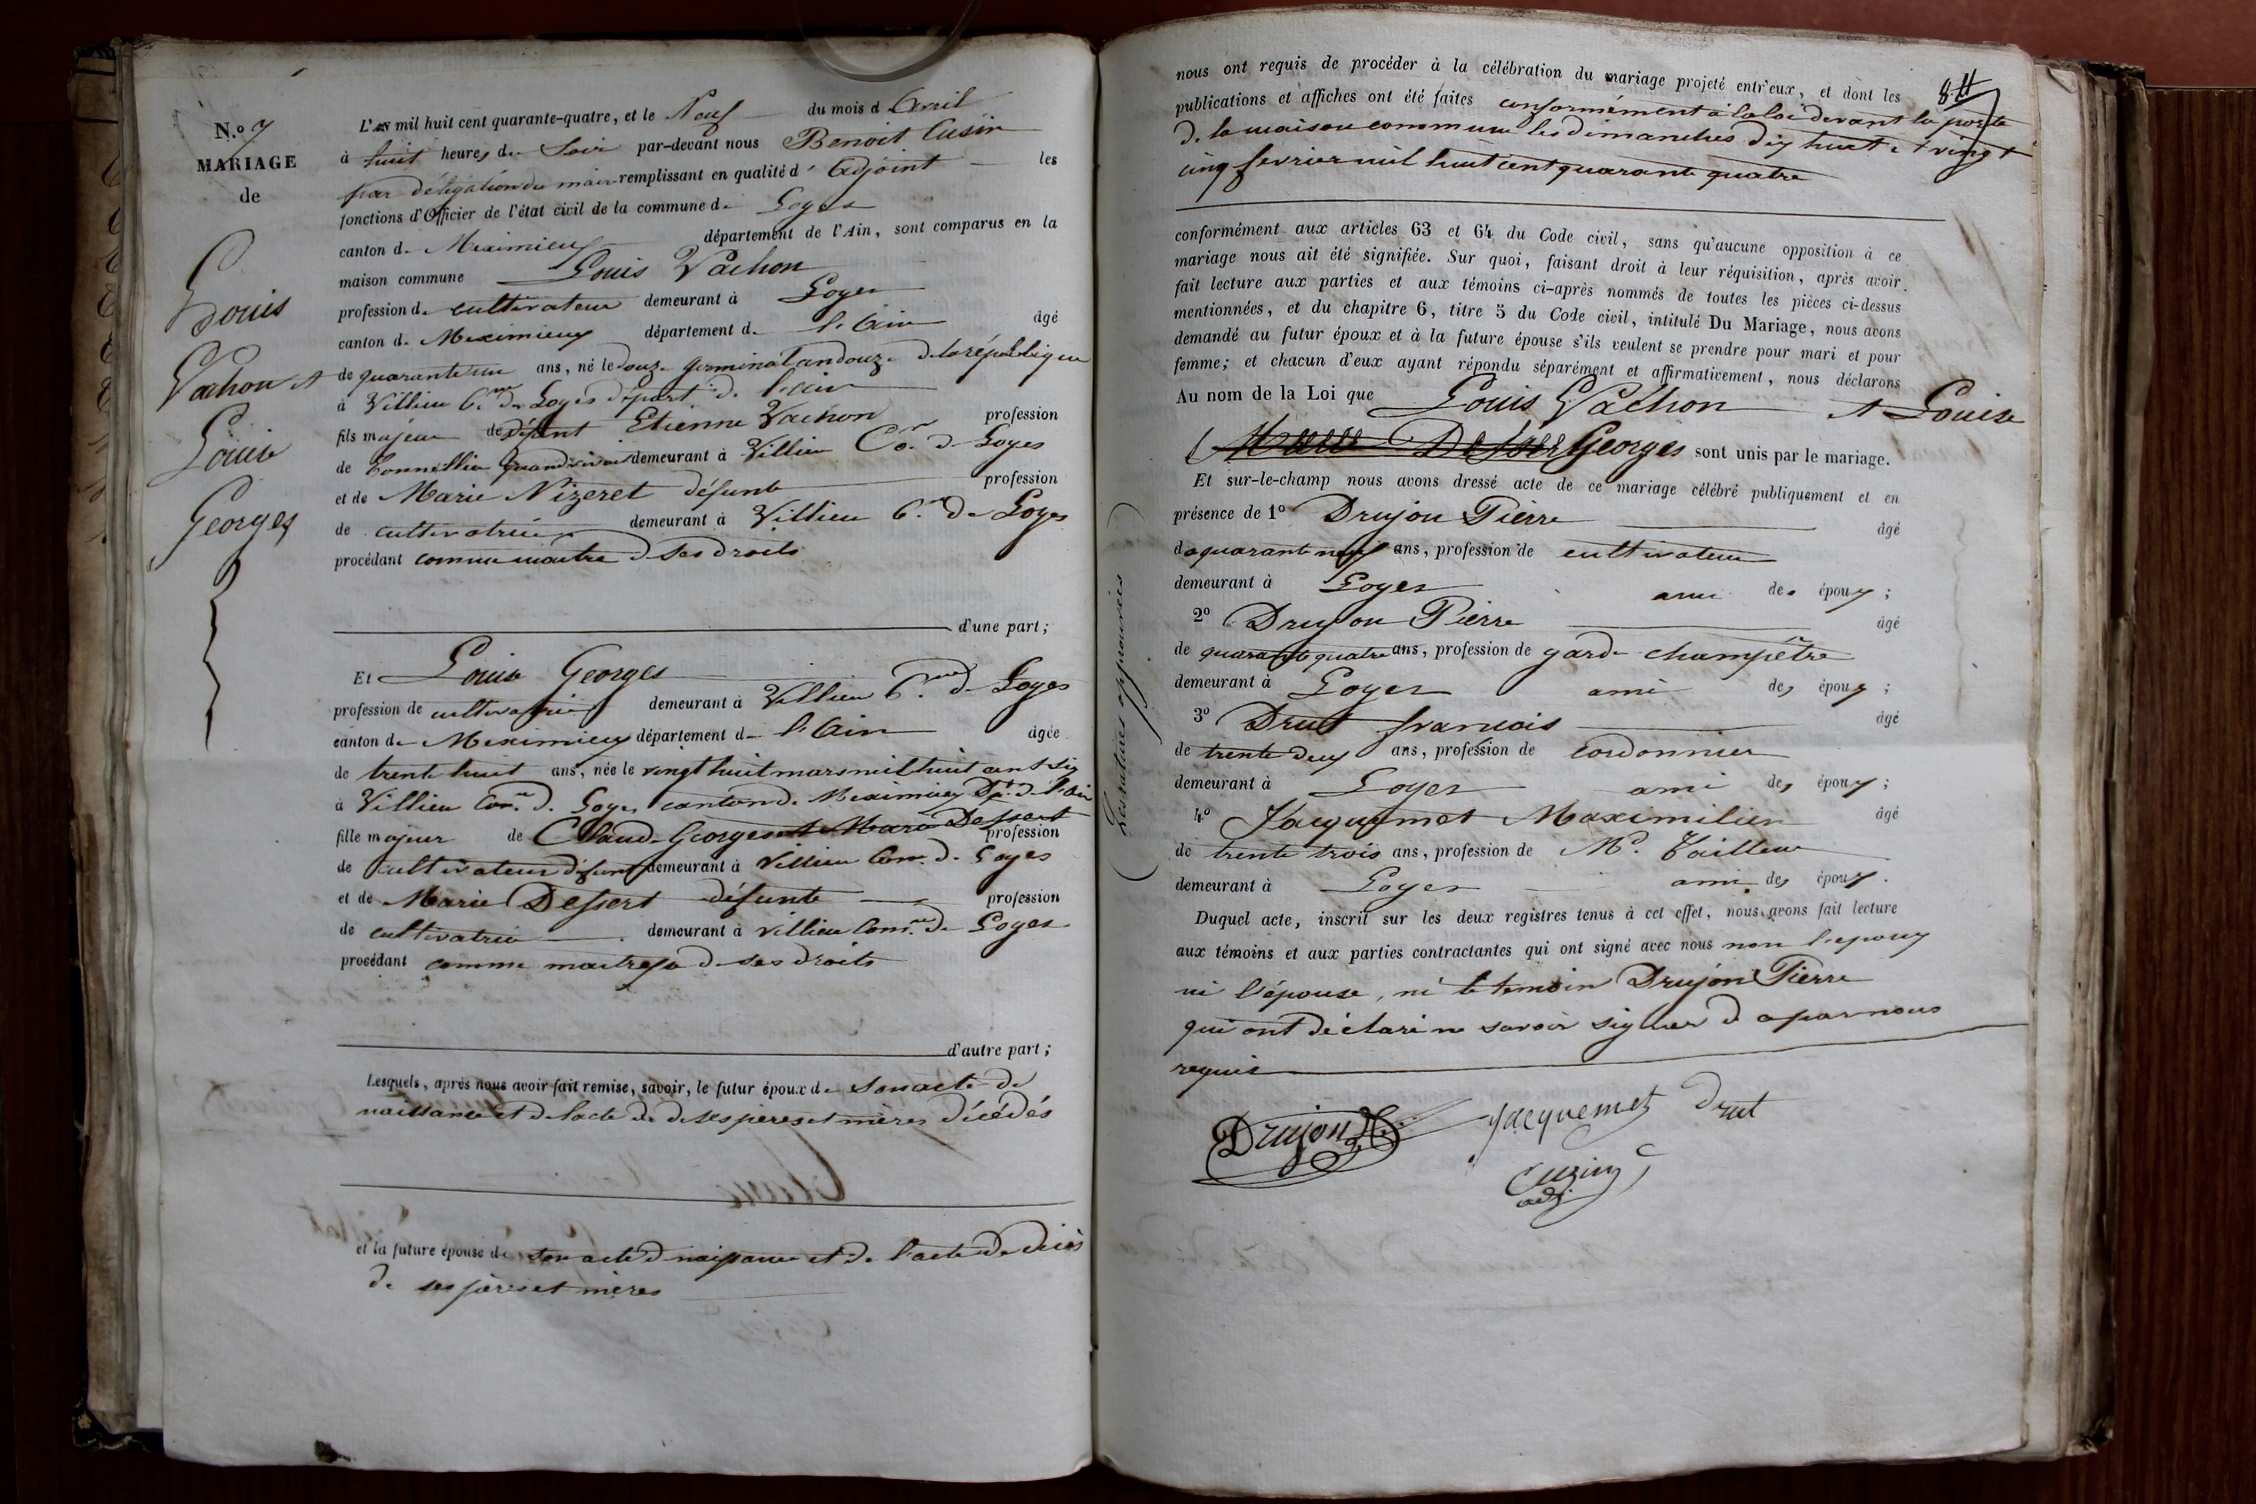 N.º 7
MARIAGE
de
Louis
Vachon et
Louise
Georges
L'an mil huit cent quarante-quatre, et le Neuf du mois d'Avril
à huit heures du Soir par-devant nous Benoit Cusin
par délégation du maire remplissant en qualité d'Adjoint les
fonctions d'Officier de l'état civil de la commune de Loyes
canton de Meximieux département de l'Ain, sont comparus en la
maison commune Louis Vachon
profession de cultivateur demeurant à Loyes
canton de Meximieux département de l'Ain âgé
de quarante un ans, né le douze germinal an douze de la république
à Villieu Cne de Loyes départ. de l'ain
fils majeur de défunt Etienne Vachon profession
de Tonnellier quand vivait demeurant à Villieu Con. de Loyes
et de Marie Nizeret défunte profession
de cultivatrice demeurant à Villieu Cne de Loyes
procédant comme maitre de ses droits
d'une part;
Et Louise Georges
profession de cultivatrice demeurant à Villieu Cne de Loyes
canton de Meximieux département de l'Ain âgée
de trente huit ans, née le vingt huit mars mil huit cent six
à Villieu Con. de Loyes canton de Meximieux Dpt. de l'Ain
fille majeur de Claude Georges et Marie Dessert profession
de cultivateur défunt demeurant à Villieu Con. de Loyes
et de Marie Dessert défunte profession
de cultivatrice demeurant à villieu Com.ne de Loyes
procédant comme maitresse de ses droits
d'autre part;
Lesquels, après nous avoir fait remise, savoir, le futur époux de son acte de
naissance et de l'acte de de ses pères et mères décédés
et la future épouse de son acte de naissance et de l'acte de décès
de ses pères et mères
84
nous ont requis de procéder à la célébration du mariage projeté entr'eux, et dont les
publications et affiches ont été faites conformément à la loi devant la porte
de la maison commune les dimanches dix huit et vingt
cinq fevrier mil huit cent quarante quatre
conformément aux articles 63 et 64 du Code civil, sans qu'aucune opposition à ce
mariage nous ait été signifiée. Sur quoi, faisant droit à leur réquisition, après avoir
fait lecture aux parties et aux témoins ci-après nommés de toutes les pièces ci-dessus
mentionnées, et du chapitre 6, titre 5 du Code civil, intitulé Du Mariage, nous avons
demandé au futur époux et à la future épouse s'ils veulent se prendre pour mari et pour
femme; et chacun d'eux ayant répondu séparément et affirmativement, nous déclarons
Au nom de la Loi que Louis Vachon et Louise
Georges sont unis par le mariage.
Et sur-le-champ nous avons dressé acte de ce mariage célébré publiquement et en
présence de 1º Drujon Pierre âgé
de quarante neuf ans, profession de cultivateur
demeurant à Loyes ami des époux;
2º Drujon Pierre âgé
de quarante quatre ans, profession de garde champêtre
demeurant à Loyes ami des époux;
3º Drut francois âgé
de trente deux ans, profession de cordonnier
demeurant à Loyes ami des époux;
4º Jacquemet Maximilien âgé
de trente trois ans, profession de Md. Tailleur
demeurant à Loyes ami des époux.
Duquel acte, inscrit sur les deux registres tenus à cet effet, nous avons fait lecture
aux témoins et aux parties contractantes qui ont signé avec nous non l'epoux
ni l'épouse, ni le temoin Drujon Pierre
qui ont déclaré ne savoir signer de a par nous
requis
Drujon Jacquemet Drut
Cuzin
adj.
(Les ratures approuvées)